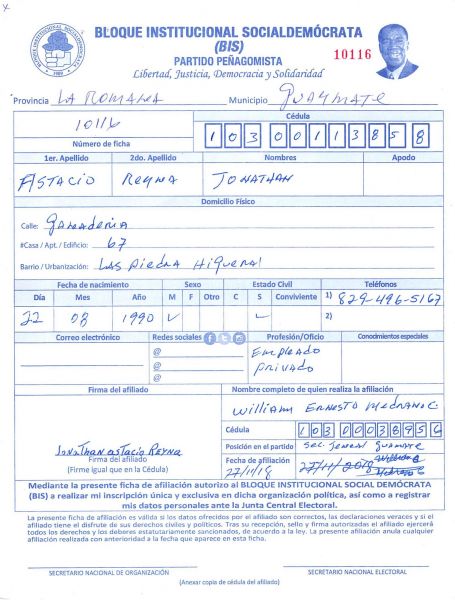 BLOQUE INSTITUCIONAL SOCIALDEMÓCRATA
(BIS)
PARTIDO PEÑAGOMISTA
10116
Libertad, Justicia, Democracia y Solidaridad
Provincia LA ROMANA Municipio GUAYMATE
10116
Número de ficha
Cédula
103 0011385 8
1er. Apellido 2do. Apellido Nombres Apodo
ASTACIO Reyna JONATHAN
Domicilio Físico
Calle: Ganaderia
#Casa / Apt. / Edificio: 67
Barrio / Urbanización: LAS Piedra Higueral
Fecha de nacimiento Sexo Estado Civil Teléfonos
Día Mes Año M F Otro C S Conviviente 1) 829-496-5167
22 08 1990 ✓ ✓ 2)
Correo electrónico Redes sociales Profesión/Oficio Conocimientos especiales
@ Empleado
@ privado
@
Firma del afiliado Nombre completo de quien realiza la afiliación
William Ernesto Medrano C.
Cédula 103 0003895 6
Jonathan astacio Reyna
Posición en el partido Sec. General Guamate
Firma del afiliado
(Firme igual que en la Cédula)
Fecha de afiliación
27/11/18 27/11/2018
Mediante la presente ficha de afiliación autorizo al BLOQUE INSTITUCIONAL SOCIAL DEMÓCRATA
(BIS) a realizar mi inscripción única y exclusiva en dicha organización política, así como a registrar
mis datos personales ante la Junta Central Electoral.
La presente ficha de afiliación es válida si los datos ofrecidos por el afiliado son correctos, las declaraciones veraces y si el
afiliado tiene el disfrute de sus derechos civiles y políticos. Tras su recepción, sello y firma autorizadas el afiliado ejercerá
todos los derechos y los deberes estatutariamente sancionados, de acuerdo a la ley. La presente afiliación anula cualquier
afiliación realizada con anterioridad a la fecha que aparece en esta ficha.
SECRETARIO NACIONAL DE ORGANIZACIÓN SECRETARIO NACIONAL ELECTORAL
(Anexar copia de cédula del afiliado)